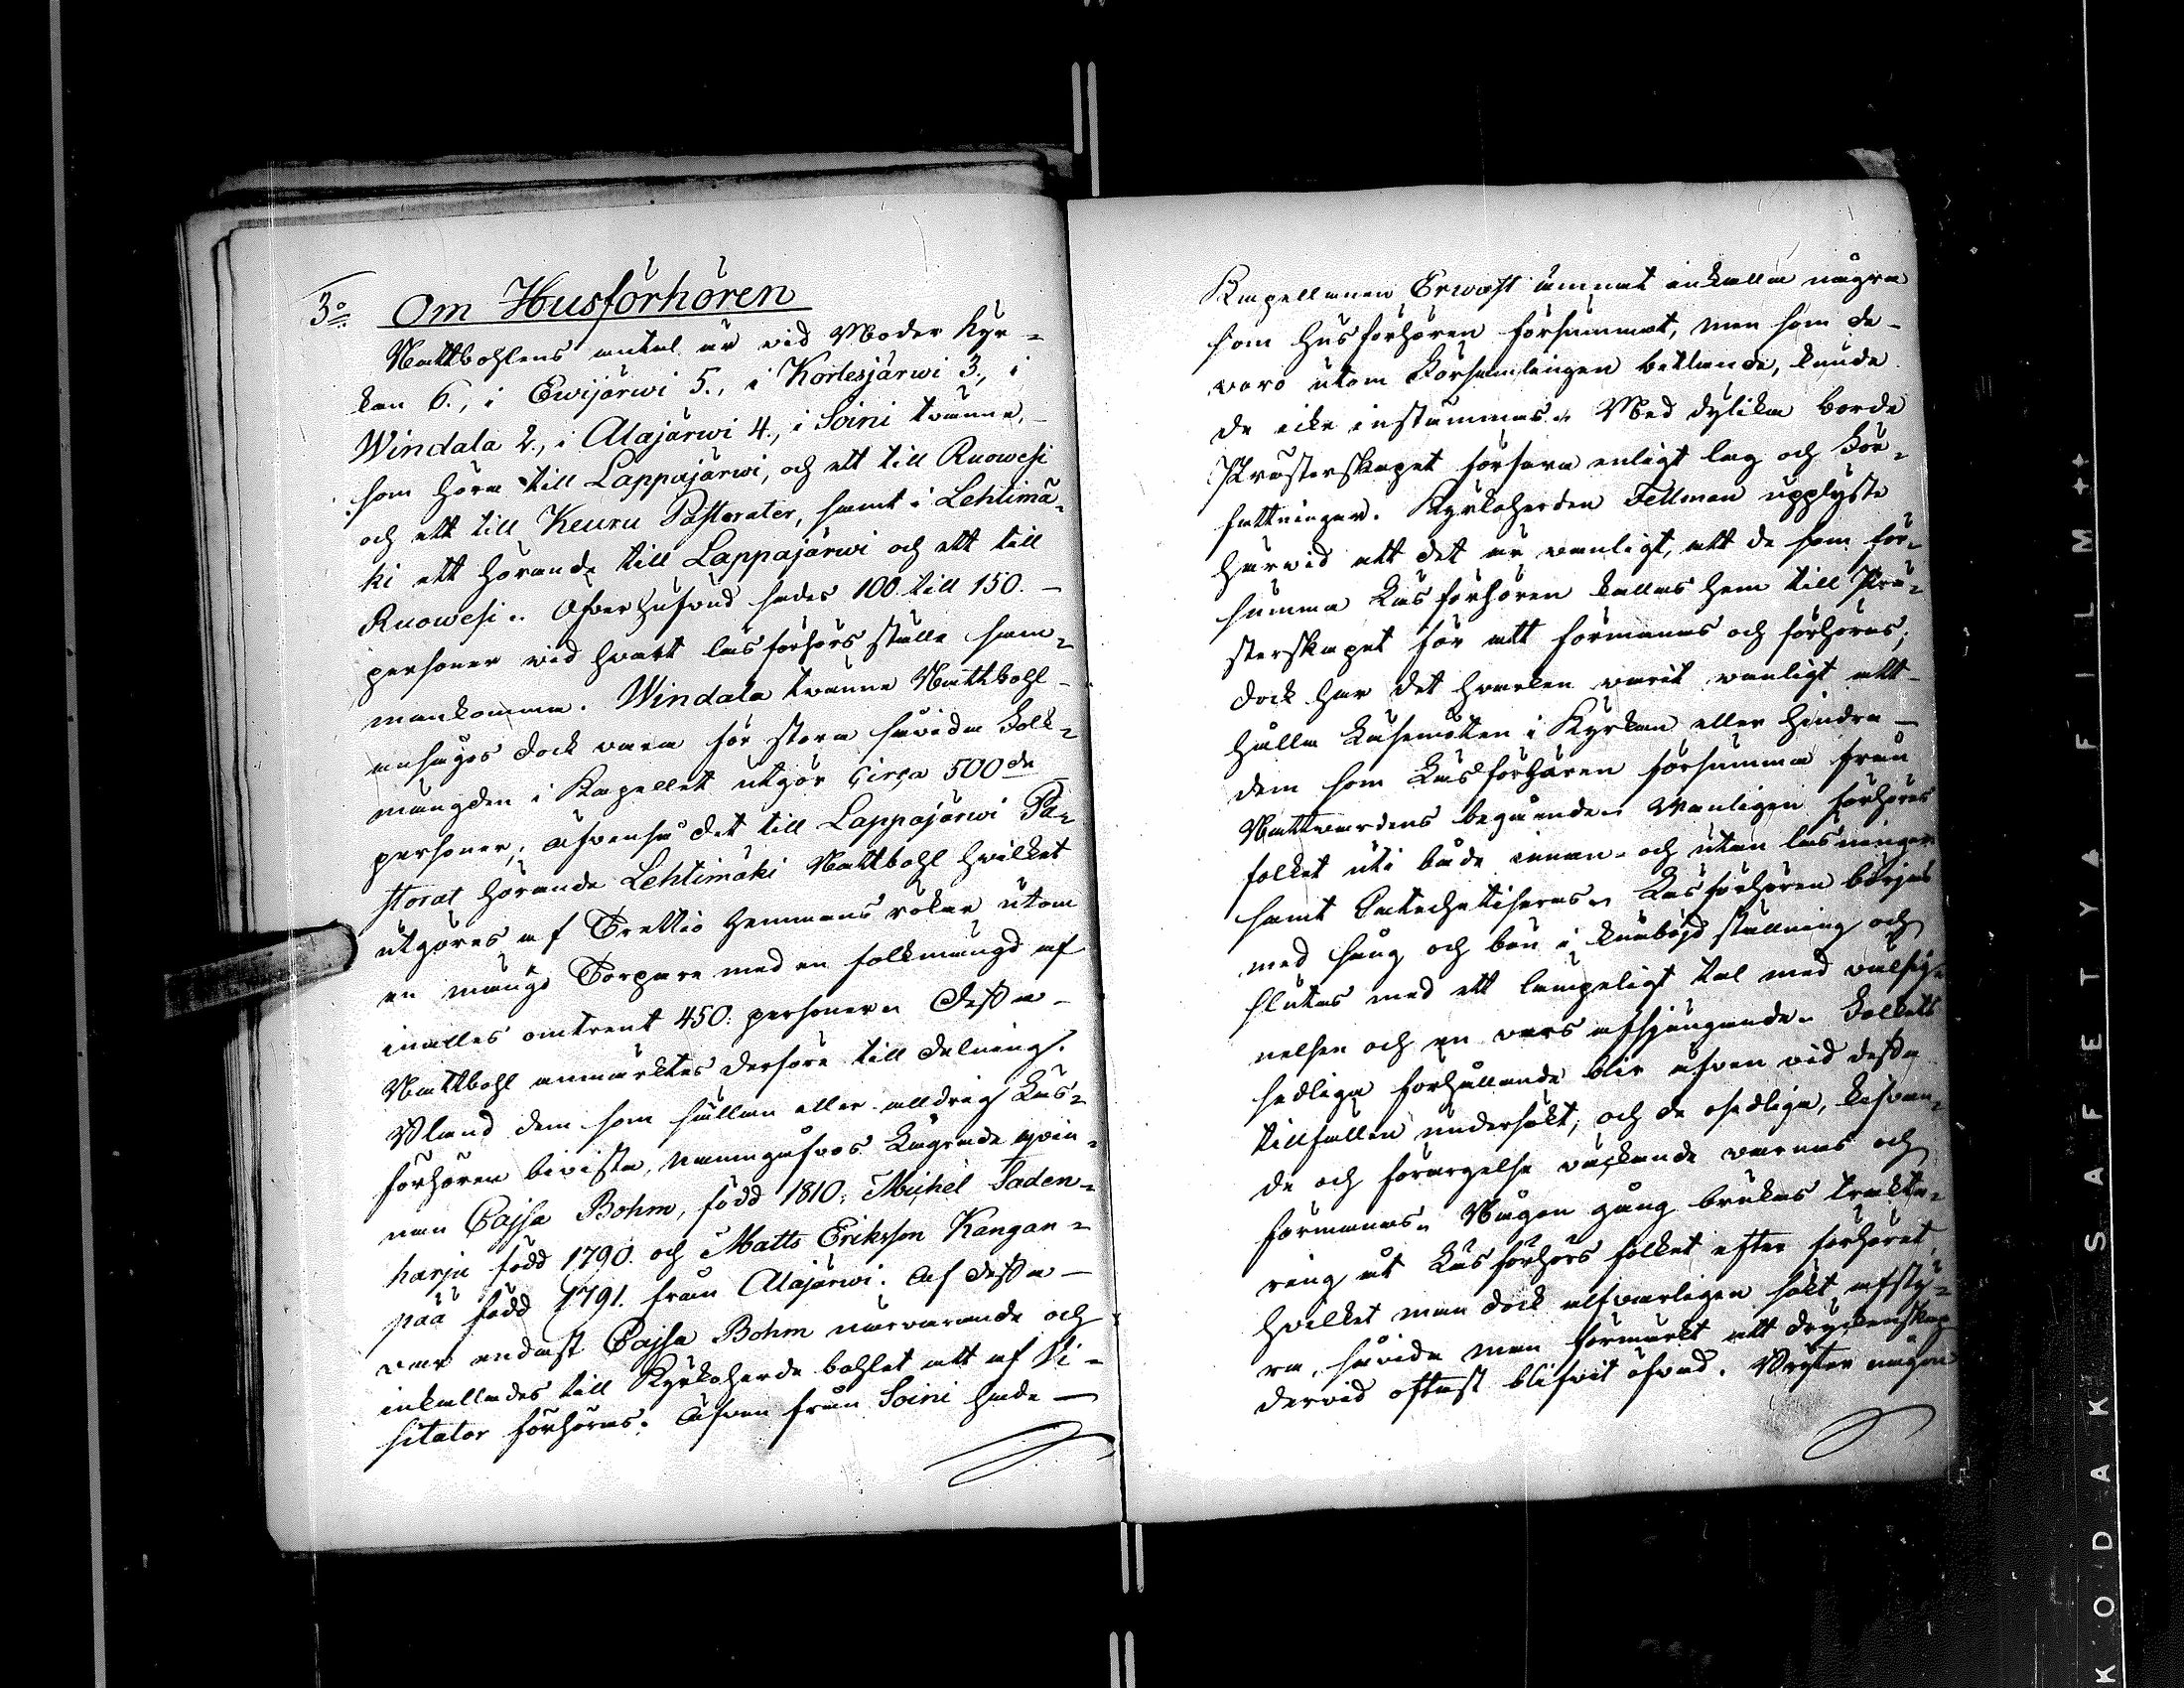 3:o Om Husförhören
Nattbohlens antal är vid Moder Kyr-
kan 6., i Ewijärwi 5., i Kortesjärwi 3., i
Windala 2., i Alajärwi 4., i Soini tvänne,
som höra till Lappajärwi, och ett till Ruowesi
och ett till Keuru Pastorater, samt i Lehtimä-
ki ett hörande till Lappajärwi och ett till
Ruowesi. Öfver hufvud sades 100 till 150. –
personer vid hvart läsförhörs ställe sam-
mankomma. Windala tvänne Nattbohl –
ansågos dock vara för stora såvida Folk-
mängden i Kapellet utgör circa 500de
personer, äfvenså det till Lappajärwi Pa-
storat hörande Lehtimäki Nattbohl hvilket
utgöres af Trettio hemmans rökar utom
en mängd Torpare med en folkmängd af
inalles omtrent 450: personer. Dessa –
Nattbohl anmärktes derföre till delning.
Bland dem som sällan eller alldrig Läs-
förhören bivista, namngåfvos Lägrade qvin-
nan Cajsa Bohm, född 1810; Michel Saden-
harju född 1790. och Matts Eriksson Kangan-
pää född 1791. från Alajärwi. Af dessa –
var endast Cajsa Bohm närvarande och
inkallades till Kyrkoherde bohlet att af Vi-
sitator förhöras. Äfven från Soini hade –
Kapellanen Erwast ämnat inkalla några
som husförhören försummat, men som de –
voro utom Församlingen betlande, kunde
de icke instämmas. Med dylika borde
Presterskapet förfara enligt lag och För-
fattningar. Kyrkoherden Fellman upplyste
härvid att det är vanligt, att de som för-
summa Läsförhören kallas hem till Prä-
sterskapet för att förmanas och förhöras;
dock har det hvarken varit vanligt att –
hålla Läsemöten i Kyrkan eller hindra –
dem som Läsförhören försumma från
Nattvardens begående. Vanligen förhöres
folket uti både innan- och utan läsningen
samt Catechetiseras. Läsförhören börjas
med sång och bön i knäböjd ställning och
slutas med ett lämpeligt tal med välsig-
nelsen och en vers afsjungande. Folkets
sedliga förhållande blir äfven vid dessa
tillfällen undersökt, och de osedliga, kifvan-
de och förargelse väckande varnas och
förmanas. Någon gång brukas trakte-
ring åt Läsförhörs folket efter förhöret,
hvilket man dock alfvarligen sökt afsty-
ra, såvida man förmärkt att dryckenskap
dervid oftast blifvit öfvad. Bryter någon